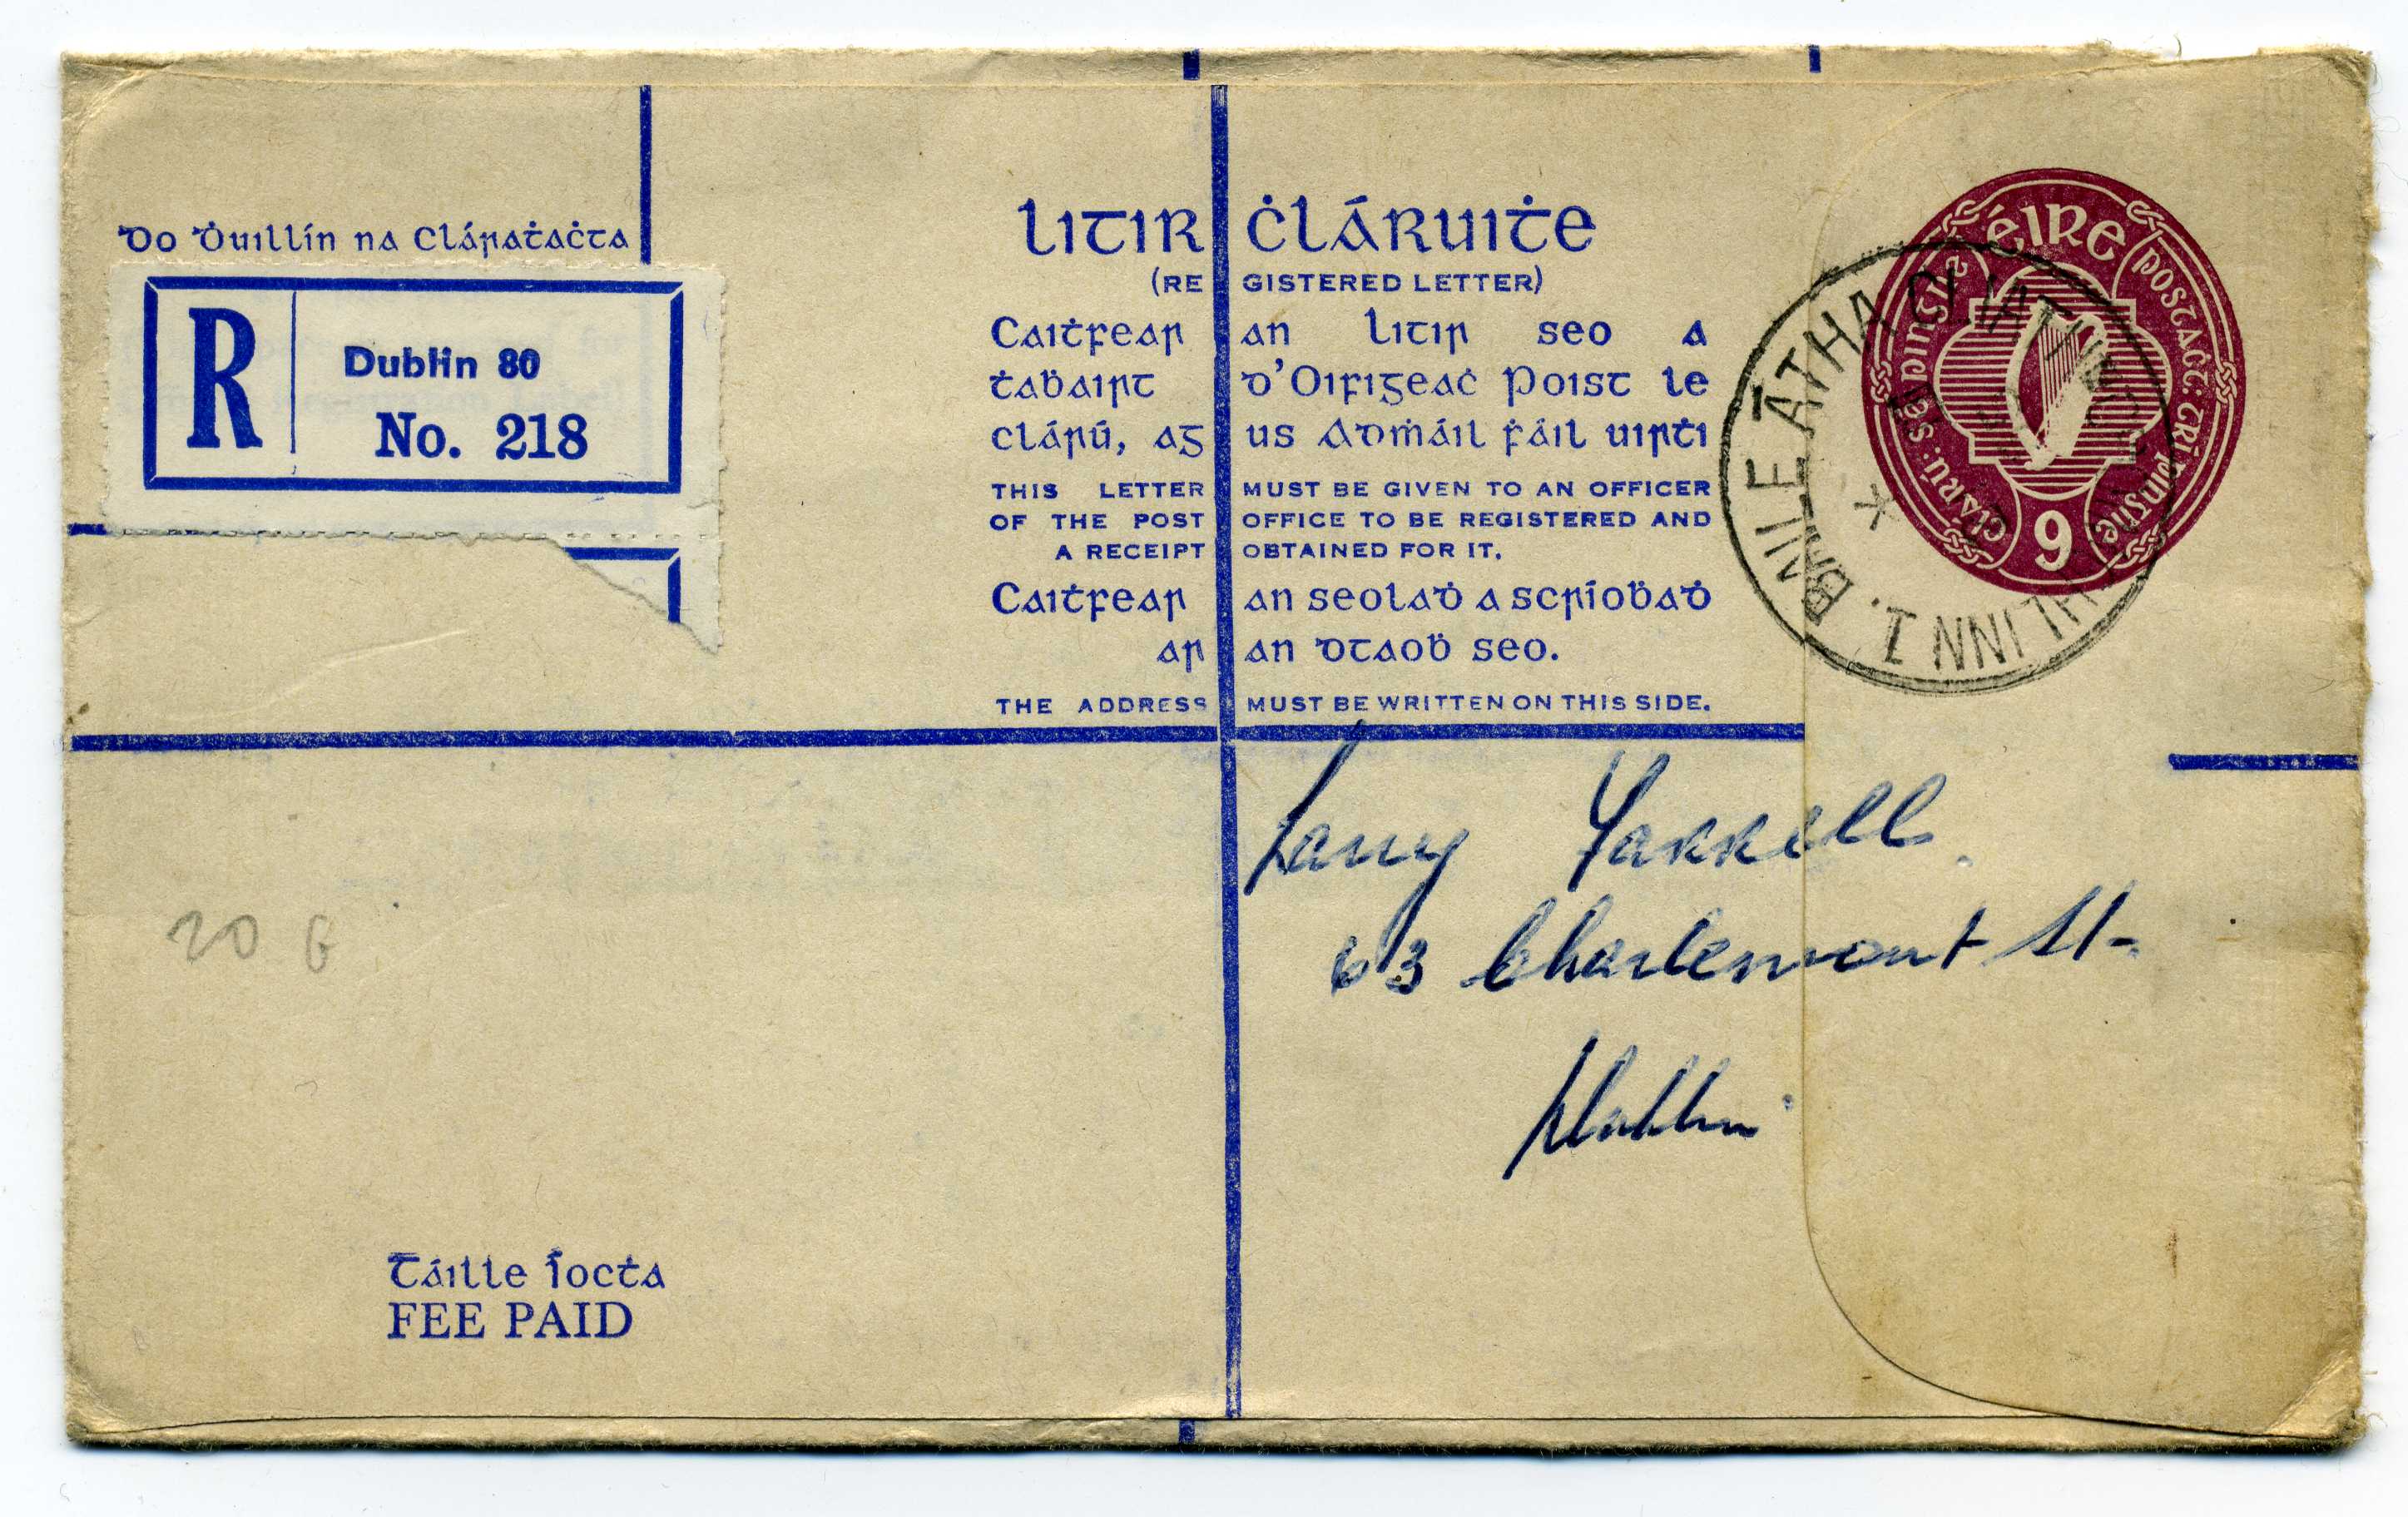 Do Ḋuillín na Cláraṫaċta
R
Dublin 80
No. 218
LITIR ĊLÁRUIṪE
(REGISTERED LETTER)
Caiṫfear an litir seo a
ṫaḃairt d'Oifigeaċ Poist le
clárú, ag us Admáil ḟáil uirṫi
THIS LETTER MUST BE GIVEN TO AN OFFICER
OF THE POST OFFICE TO BE REGISTERED AND
A RECEIPT OBTAINED FOR IT.
Caiṫfear an seolaḋ a scríoḃaḋ
ar an dtaoḃ seo.
THE ADDRESS MUST BE WRITTEN ON THIS SIDE.
éIRe
postaċt: trí pinġne
clárú: sé pinġne
9
BAILE ÁTHA CLIATH
1.
Larry Farrell
63 Charlemont St.
Dublin
20 G
Táille íocṫa
FEE PAID